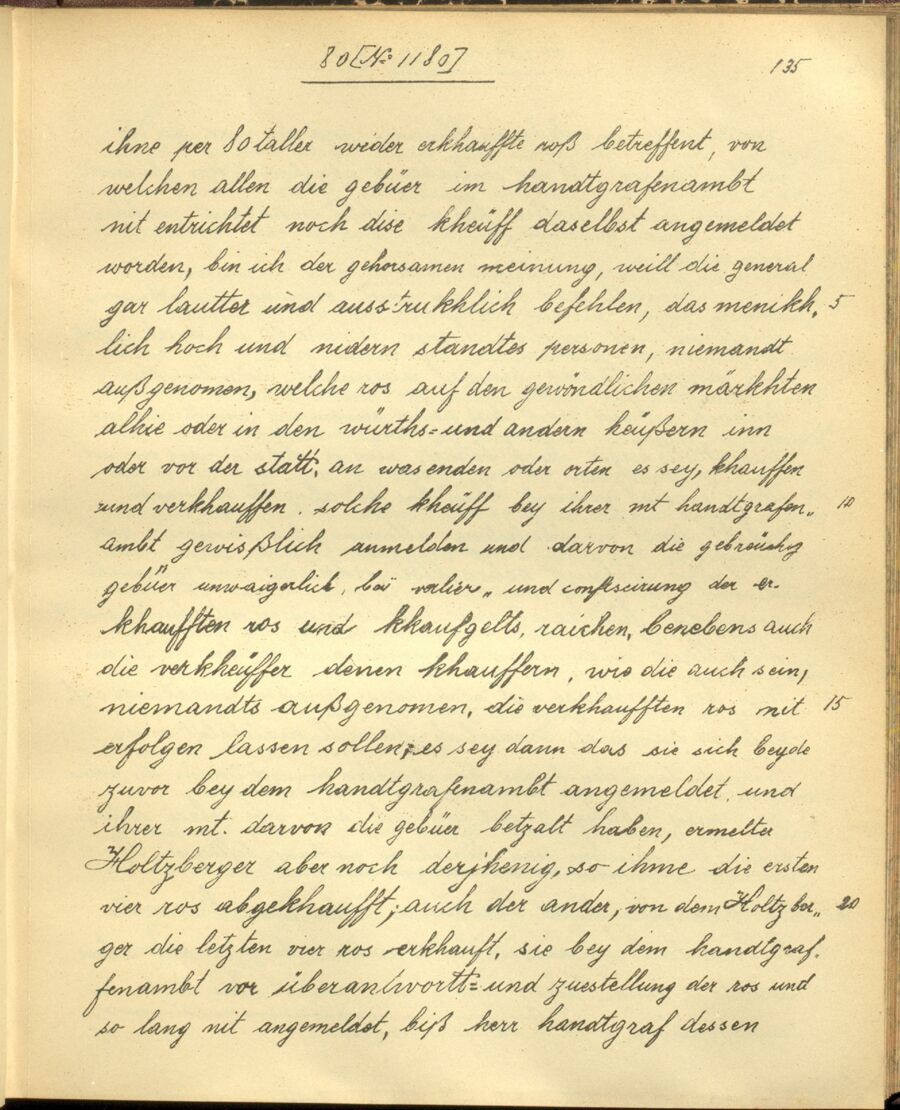 80 [№ 1180]
135
ihne per 80 taller wider erkhauffte roß betreffent, von
welchen allen die gebüer im handtgrafenambt
nit entrichtet noch dise kheüff daselbst angemeldet
worden, bin ich der gehorsamen meinung, weill die general
gar lautter und ausstrukhlich befehlen, das menikh, 5
lich hoch und nidern standtes personen, niemandt
außgenomen, welche ros auf den gewöndlichen märkhten
alhie oder in den würths= und andern heüßern inn
oder vor der statt, an was enden oder orten es sey, khauffen
und verkhauffen. solche kheüff bey ihrer mt handtgrafen„ 10
ambt gewißlich anmelden und darvon die gebreüchig
gebüer unwaigerlich, bei verlier„ und confiscirung der er-
khaufften ros und kkaufgelts, raichen, benebens auch
die verkheüffer denen khauffern, wie die auch sein,
niemandts außgenomen, die verkhaufften ros nit 15
erfolgen lassen sollen; es sey dann das sie sich beyde
zuvor bey dem handtgrafenambt angemeldet, und
ihrer mt. darvon die gebüer betzalt haben, ermelter
Holtzberger aber noch derjhenig, so ihme die ersten
vier ros abgekhaufft; auch der ander, von dem Holtzber„ 20
ger die letzten vier ros erkhauft, sie bey dem handtgraf,
fenambt vor überantwortt= und zuestellung der ros und
so lang nit angemeldet, biß herr handtgraf dessen